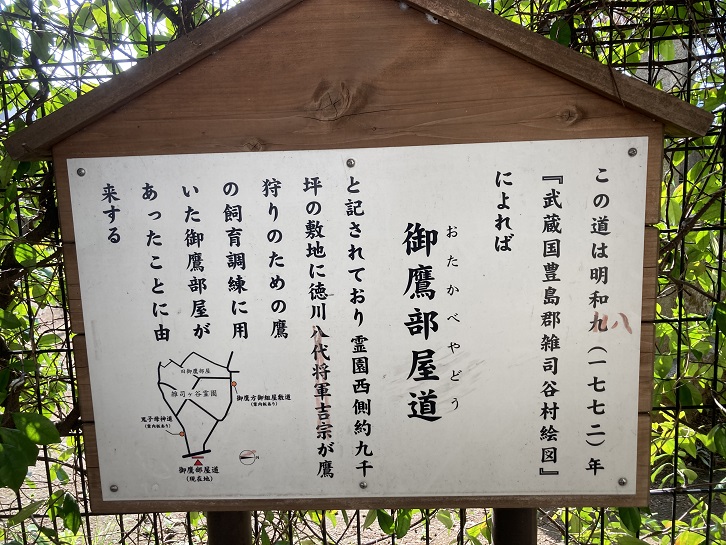 この道は明和九(一七七二)年
八
『武蔵国豊島郡雑司谷村絵図』
によれば
おたかべやどう
御鷹部屋道
と記されており霊園西側約九千
坪の敷地に徳川八代将軍吉宗が鷹
狩りのための鷹
の飼育調練に用
いた御鷹部屋が
あったことに由
来する
旧御鷹部屋
雑司ヶ谷霊園
御鷹方御組屋敷道
(案内板あり)
鬼子母神道
(案内板あり)
御鷹部屋道
(現在地)